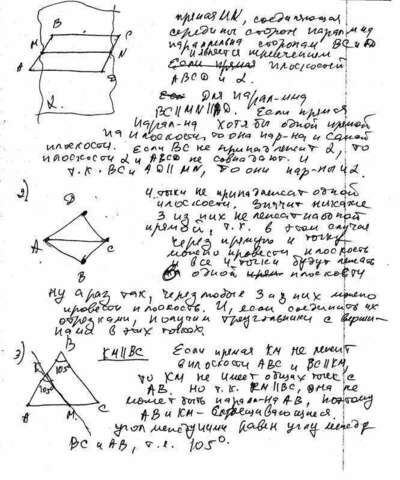 прямая MN, соединяющая
середины сторон парал-мма
параллельна сторонам BC и AD
и является пересечением
Если прямая плоскостей
ABCD и α.
Для парал-мма
BC||MN||AD. Если прямая
парал-на хотя бы одной прямой
на плоскости, то она пар-на и самой
плоскости. Если BC не принадлежит α, то
плоскости α и ABCD не совпадают. И
т.к. BC и AD || MN, то они пар-ны и α.
B
C
M
N
A
D
α
2)
4 точки не принадлежат одной
плоскости. Значит никакие
3 из них не лежат на одной
прямой, т.к. в этом случае
через прямую и точку
можно провести плоскость
и все 4 точки будут лежать
в одной плоскости
D
A
C
B
Ну а раз так, через любые 3 из них можно
провести плоскость. И, если соединить их
отрезками, получим треугольники с верши-
нами в этих точках.
3)
KM||BC
Если прямая KM не лежит
в плоскости ABC и BC||KM,
то KM не имеет общих точек с
AB. Но т.к. KM||BC, она не
может быть парал-на AB, поэтому
AB и KM - скрещивающиеся.
Угол между ними равен углу между
BC и AB, т.е. 105°.
B
105°
K
105°
A
M
C